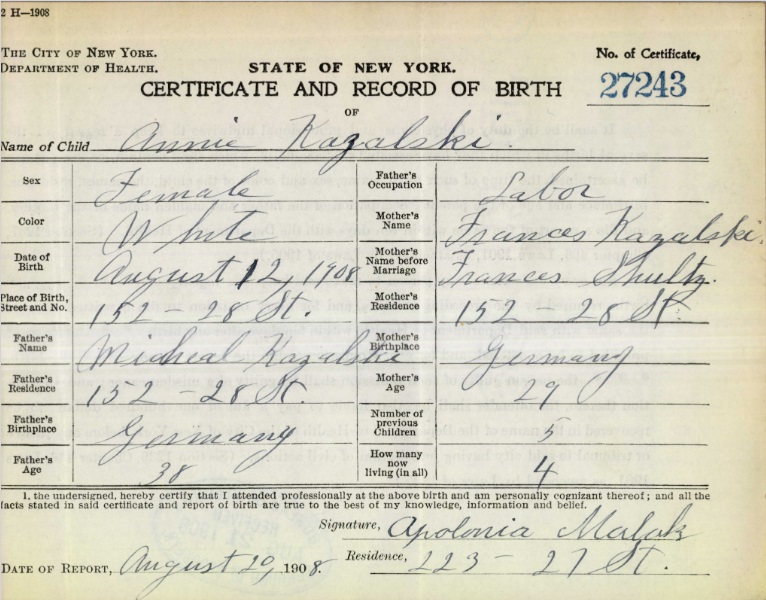 2 H—1908
THE CITY OF NEW YORK.
DEPARTMENT OF HEALTH.
STATE OF NEW YORK.
No. of Certificate,
27243
CERTIFICATE AND RECORD OF BIRTH
OF
Name of Child Annie Kazalski
Sex Female
Father's Occupation Labor
Color White
Mother's Name Frances Kazalski.
Date of Birth August 12, 1908
Mother's Name before Marriage Frances Shultz.
Place of Birth, Street and No. 152 - 28 St.
Mother's Residence 152 - 28 St.
Father's Name Micheal Kazalski
Mother's Birthplace Germany
Father's Residence 152 - 28 St.
Mother's Age 29
Father's Birthplace Germany
Number of previous Children 5
Father's Age 38
How many now living (in all) 4
I, the undersigned, hereby certify that I attended professionally at the above birth and am personally cognizant thereof; and all the
facts stated in said certificate and report of birth are true to the best of my knowledge, information and belief.
Signature, Apolonia Malak
Residence, 223 - 27 St.
DATE OF REPORT, August 20, 1908.